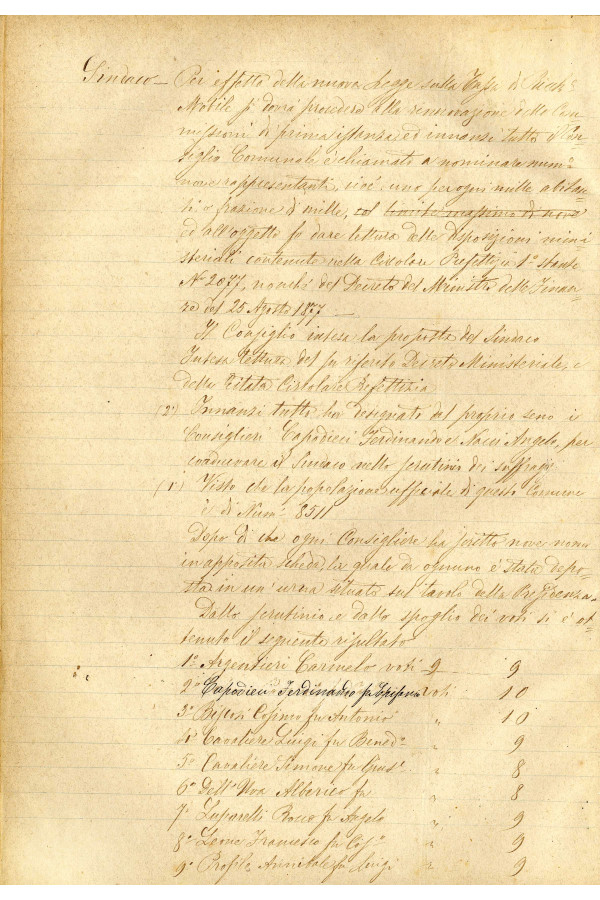 Sindaco – Per effetto della nuova Legge sulla Tassa di Ricch.ª
Mobile si dovrà procedere alla rinnovazione delle Com
missioni di prima istanza, ed innanzi tutto il Con
siglio Comunale è chiamato a nominare num.º
nove rappresentanti, cioè uno per ogni mille abitan
ti o frazione di mille, col limite massimo di nove
ed all'oggetto fa dare lettura delle disposizioni mini
steriali contenute nella Circolare Prefettizia 1º stante
Nº 2077, nonchè del Decreto del Ministro delle Finan
ze del 25 Agosto 1877 —
Il Consiglio intesa la proposta del Sindaco
Intesa lettura del su riferito Decreto Ministeriale, e
della citata Circolare Prefettizia
(2º) Innanzi tutto ha designato dal proprio seno i
Consiglieri Capodieci Ferdinando e Nacci Angelo, per
coadiuvare il Sindaco nello scrutinio dei suffragi
(1º) Visto che la popolazione ufficiale di questo Comune
è di Num.º 8511
Dopo di che ogni Consigliere ha scritto nove nomi
in apposita scheda, la quale da ognuno è stata depo
sta in un'urna situata sul tavolo della Presidenza.
Dallo scrutinio e dallo spoglio dei voti si è ot
tenuto il seguente risultato
1º Argentieri Carmelo voti 9 9
2º Capodieci Ferdinando fu voti 10
3º Cosimo fu Antonio " 10
4º Cavaliere Luigi fu Bened.º " 9
5º Cavaliere Simone fu Gius.e " 8
6º Dell'Uva Alberico fu " 8
7º Luparelli Rocco fu Angelo " 9
8º Leone Francesco fu Cos.º " 9
9º Profilo Annibale fu Luigi " 9